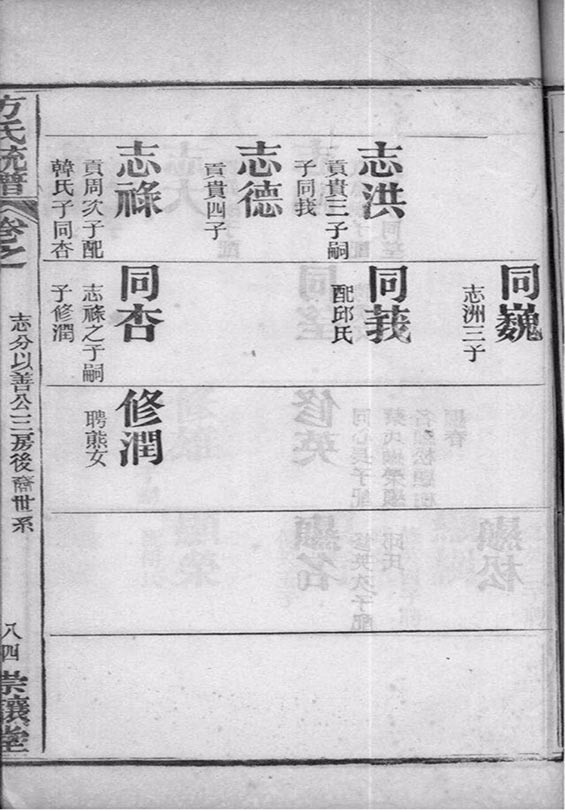 同巍
志洲三子
志洪
貢貴三子嗣
子同莪
同莪
配邱氏
志德
貢貴四子
志祿
貢周次子配
韓氏子同杏
同杏
志祿之子嗣
子修潤
修潤
聘熊女
方氏統譜
卷之一
志分以善公三房後裔世系
八四
崇讓堂